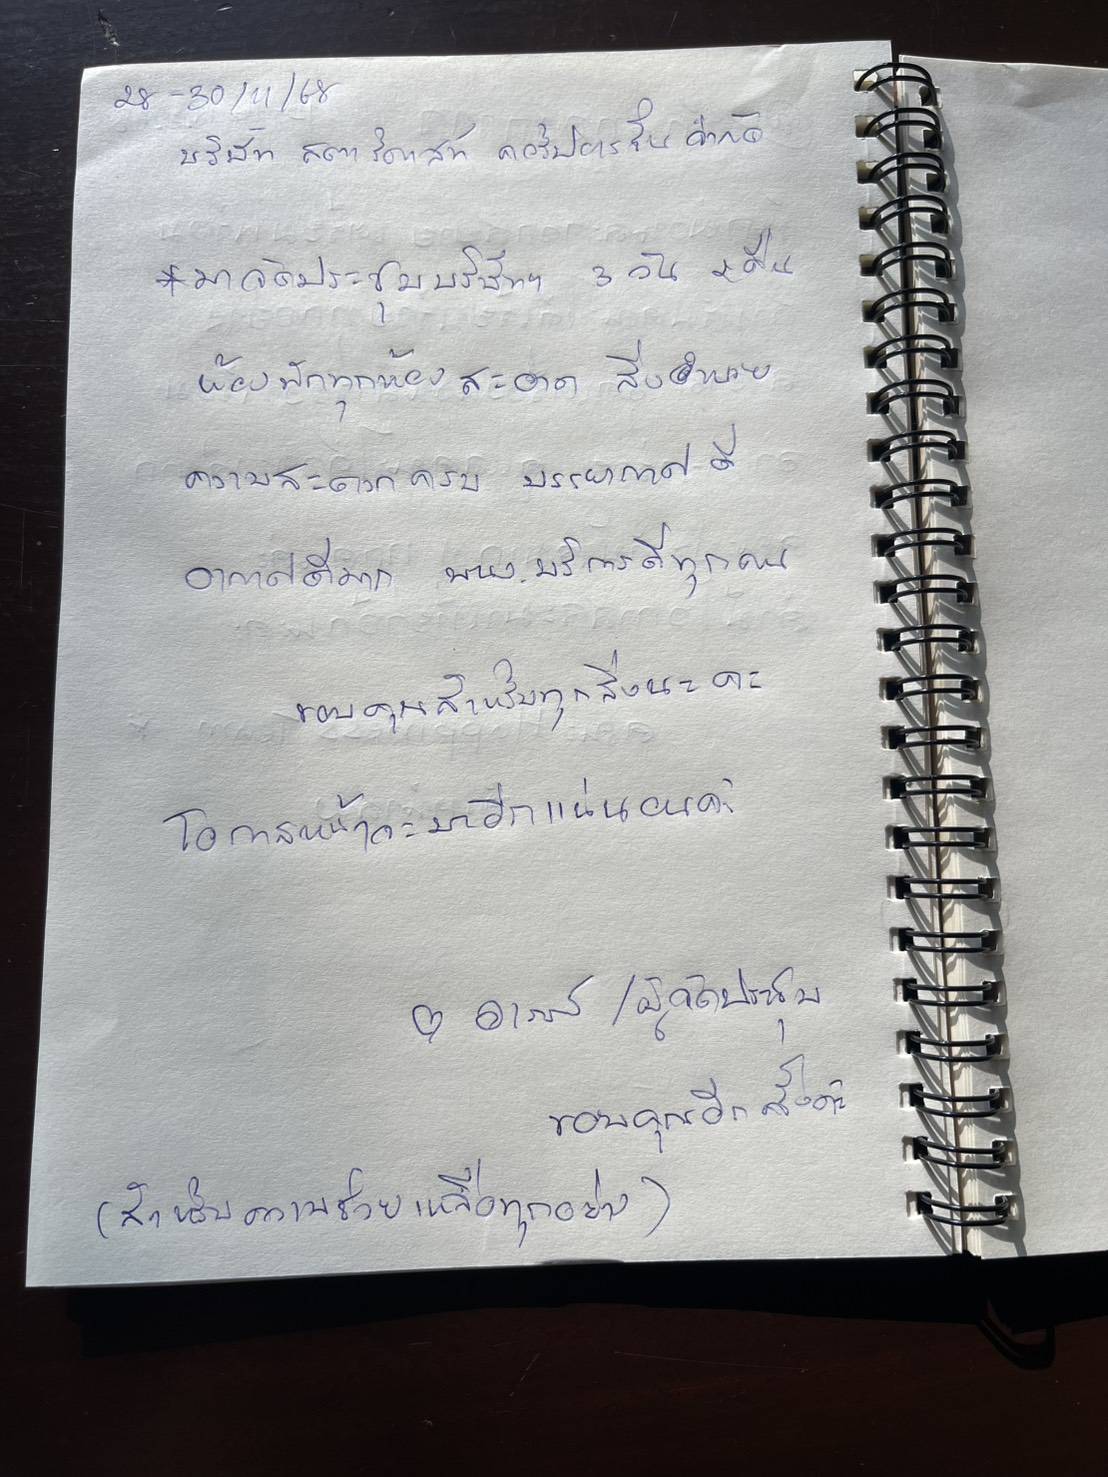 28-30/11/68
บริษัท สตาร์ คอร์ปอเรชั่น จำกัด
*มาจัดประชุมบริษัทฯ 3 วัน 2 คืน
ห้องพักทุกห้อง สะอาด สิ่งอำนวย
ความสะดวกครบ บรรยากาศดี
อากาศดีมาก พนง.บริการดีทุกคน
ขอบคุณสำหรับทุกสิ่งนะคะ
โอกาสหน้าจะมาอีกแน่นอนค่ะ
/ผู้จัดประชุม
ขอบคุณอีกครั้งค่ะ
(สำหรับความช่วยเหลือทุกอย่าง)